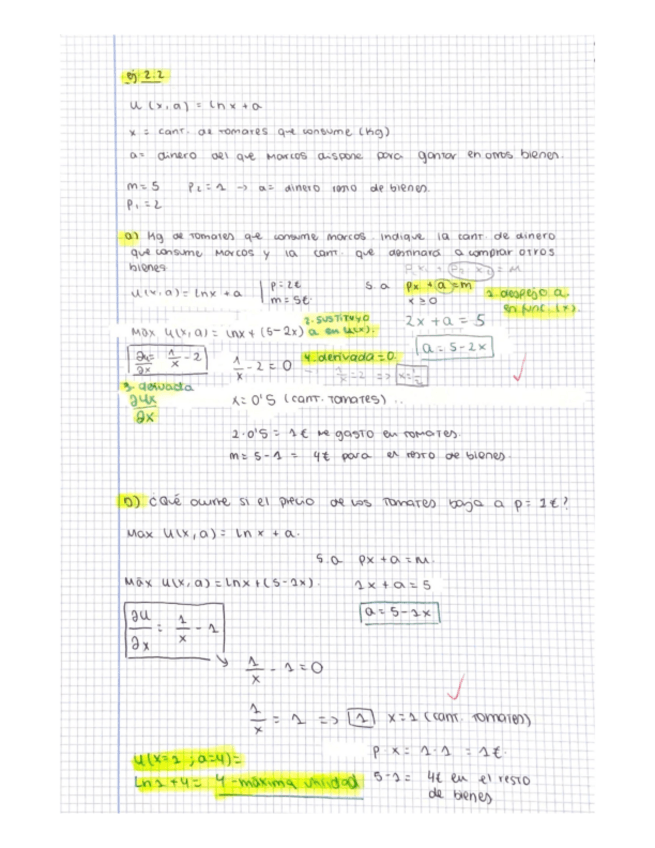 ej 2.2
u(x,a) = ln x + a
x = cant. de tomates que consume (kg)
a = dinero del que Marcos dispone para gastar en otros bienes.
m = 5 P₂ = 1 -> a = dinero resto de bienes.
P₁ = 2
a) Kg de tomates que consume Marcos. Indique la cant. de dinero
que consume Marcos y la cant. que destinará a comprar otros
bienes
= m
u(x,a) = ln x + a | p = 2€ s.a px + a = m 1. despejo a.
m = 5€ x ≥ 0 en func. (x).
2. SUSTITUYO 2x + a = 5
Máx u(x,a) = lnx + (5-2x) a en u(x).
a = 5 - 2x
∂u/∂x = 1/x - 2 1/x - 2 = 0 4. derivada = 0.
1/x = 2 => x = 1/2
3. derivada
∂ux/∂x
x = 0'5 (cant. tomates)
2·0'5 = 1€ me gasto en tomates.
m = 5 - 1 = 4€ para el resto de bienes.
b) ¿Qué ocurre si el precio de los tomates baja a p = 1€?
Max u(x,a) = ln x + a.
s.a px + a = m.
Máx u(x,a) = lnx + (5-1x). 1x + a = 5
a = 5 - 1x
∂u/∂x = 1/x - 1
1/x - 1 = 0
1/x = 1 => 1 x = 1 (cant. tomates)
P·x = 1·1 = 1€.
u(x=1 ; a=4) =
ln 1 + 4 = 4 - máxima utilidad 5-1 = 4€ en el resto
de bienes